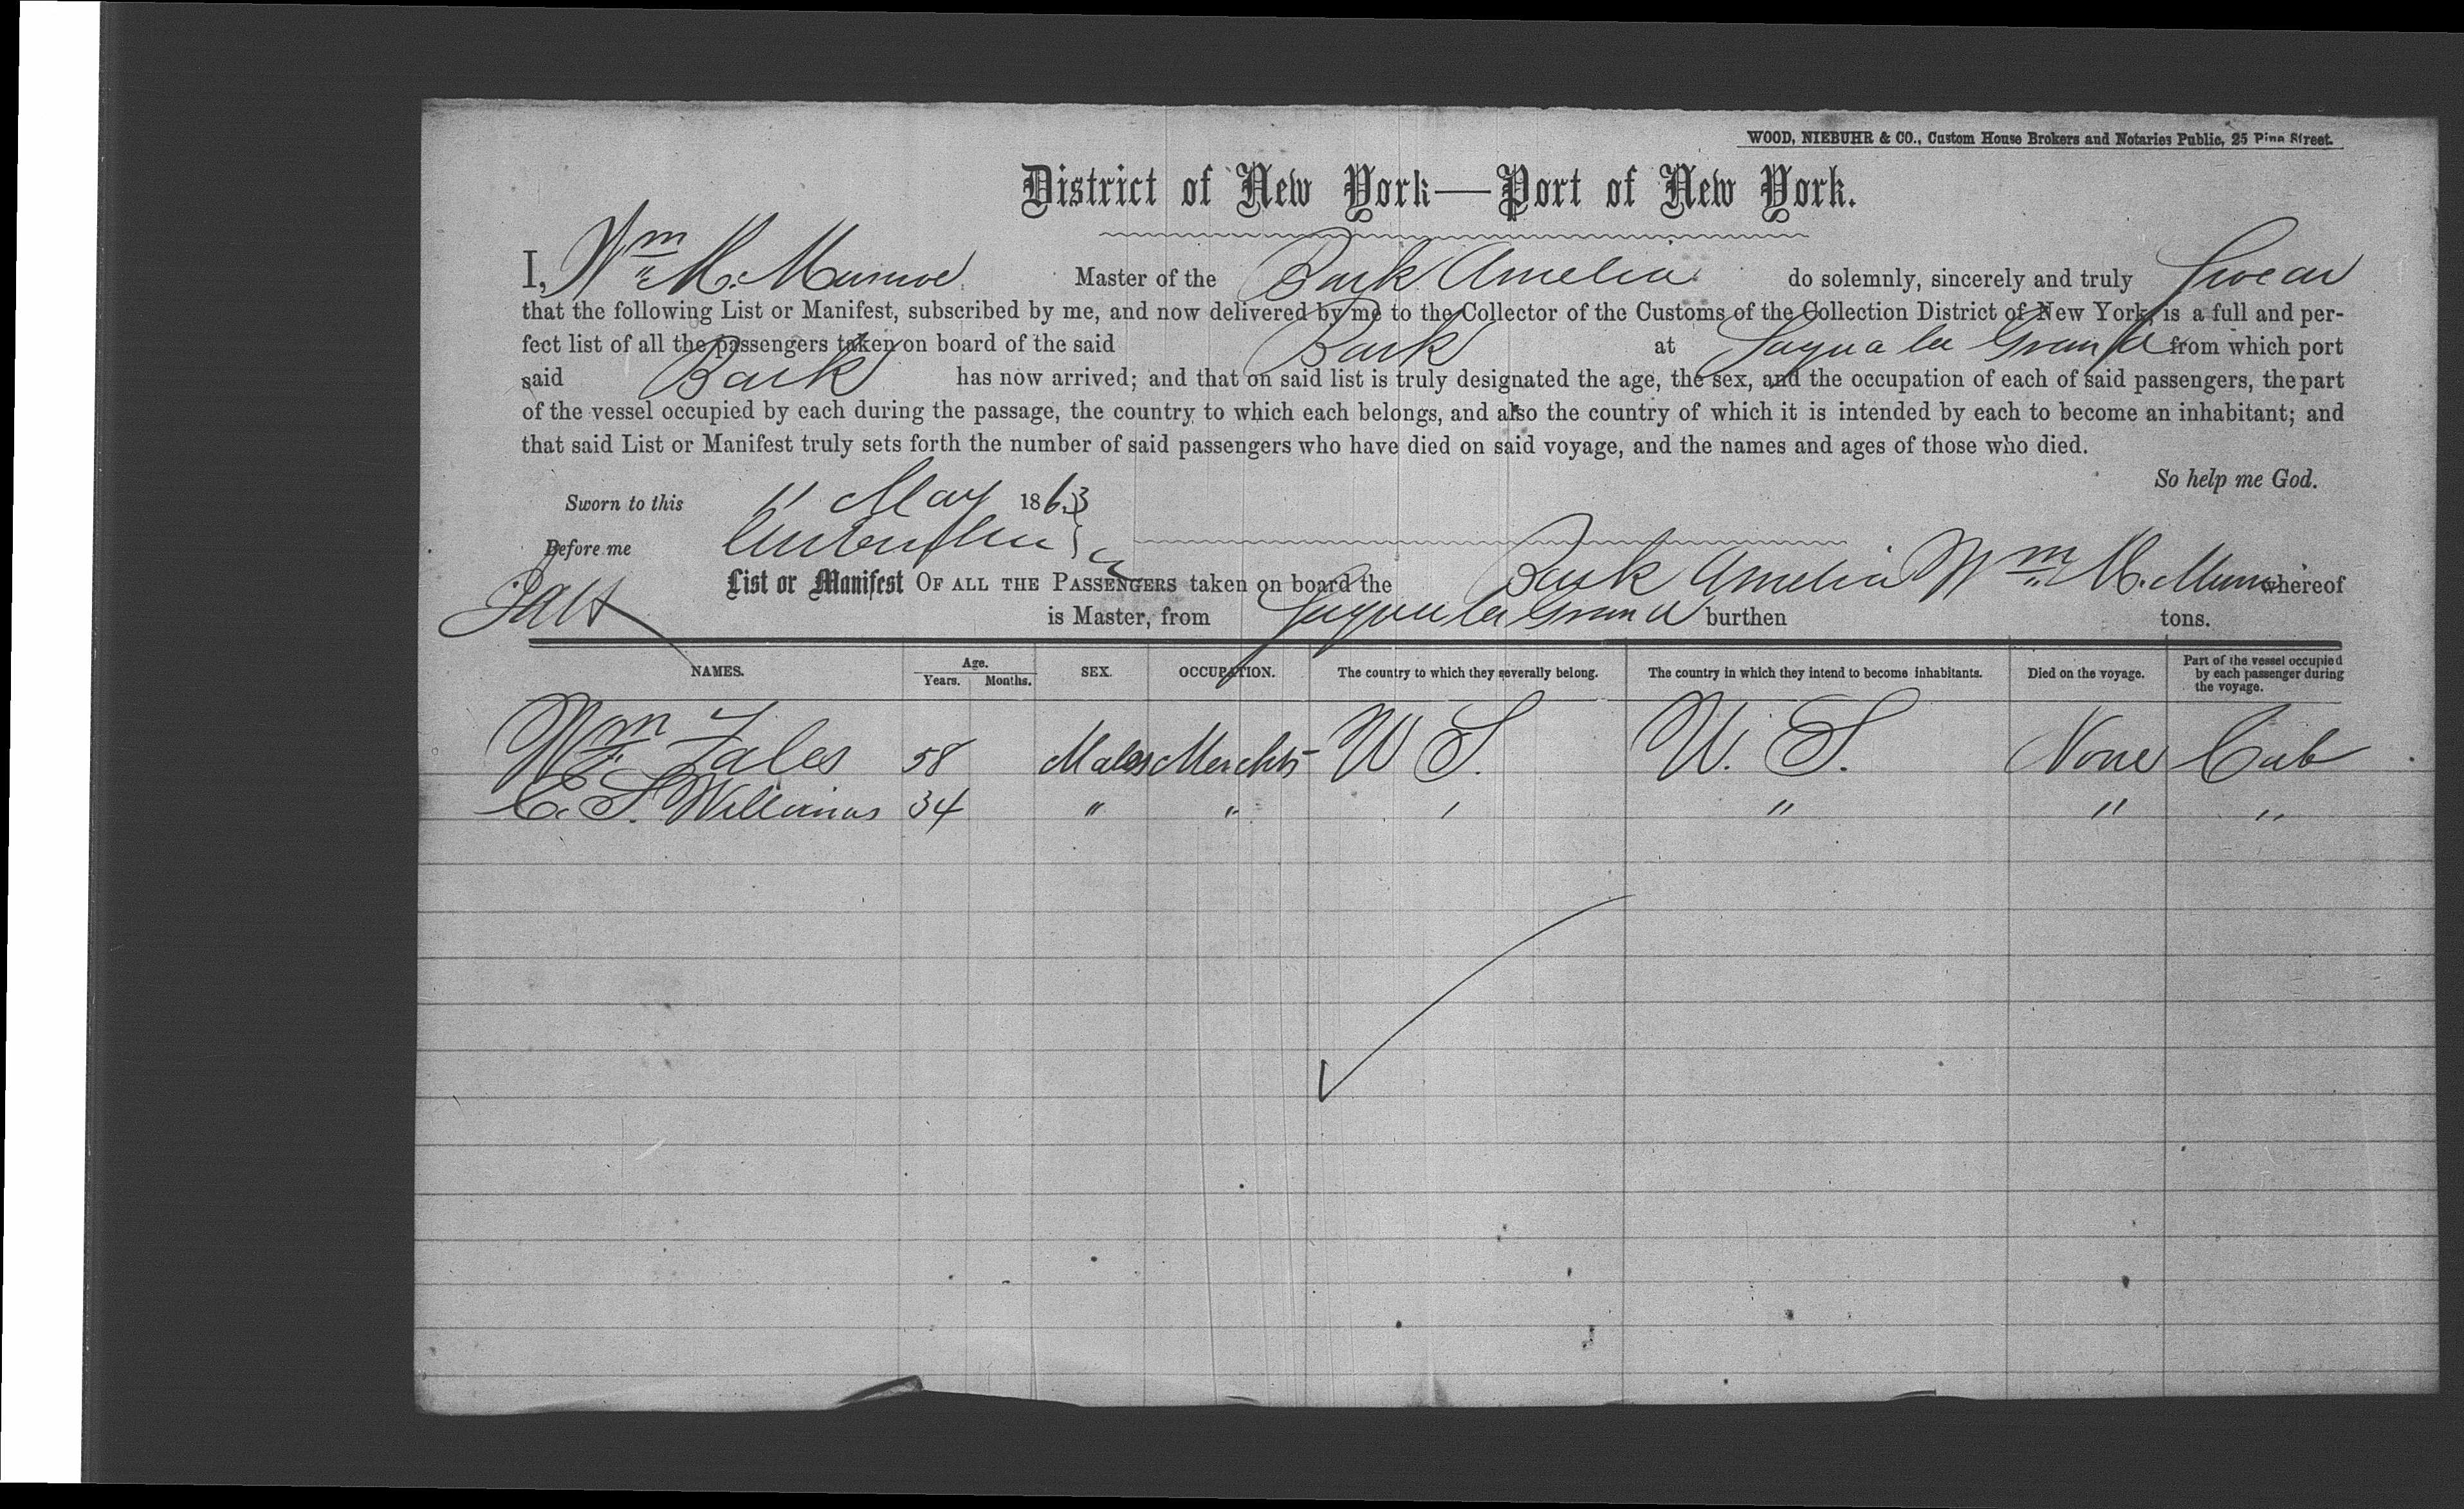 WOOD, NIEBUHR & CO., Custom House Brokers and Notaries Public, 25 Pine Street.
District of New York—Port of New York.
I, Wm M. Munroe Master of the Bark Amelia do solemnly, sincerely and truly Swear
that the following List or Manifest, subscribed by me, and now delivered by me to the Collector of the Customs of the Collection District of New York, is a full and per-
fect list of all the passengers taken on board of the said Bark at Sagua la Grand from which port
said Bark has now arrived; and that on said list is truly designated the age, the sex, and the occupation of each of said passengers, the part
of the vessel occupied by each during the passage, the country to which each belongs, and also the country of which it is intended by each to become an inhabitant; and
that said List or Manifest truly sets forth the number of said passengers who have died on said voyage, and the names and ages of those who died.
So help me God.
Sworn to this 11 May 1863
Before me
List or Manifest OF ALL THE PASSENGERS taken on board the Bark Amelia Wm M. Munroe whereof
is Master, from Sagua la Grand burthen tons.
NAMES. Age. Years. Months. SEX. OCCUPATION. The country to which they severally belong. The country in which they intend to become inhabitants. Died on the voyage. Part of the vessel occupied by each passenger during the voyage.
Wm F. Fales 58 Males Merchts U S. U. S. None Cab
C. S. Williams 34 " " " " " "